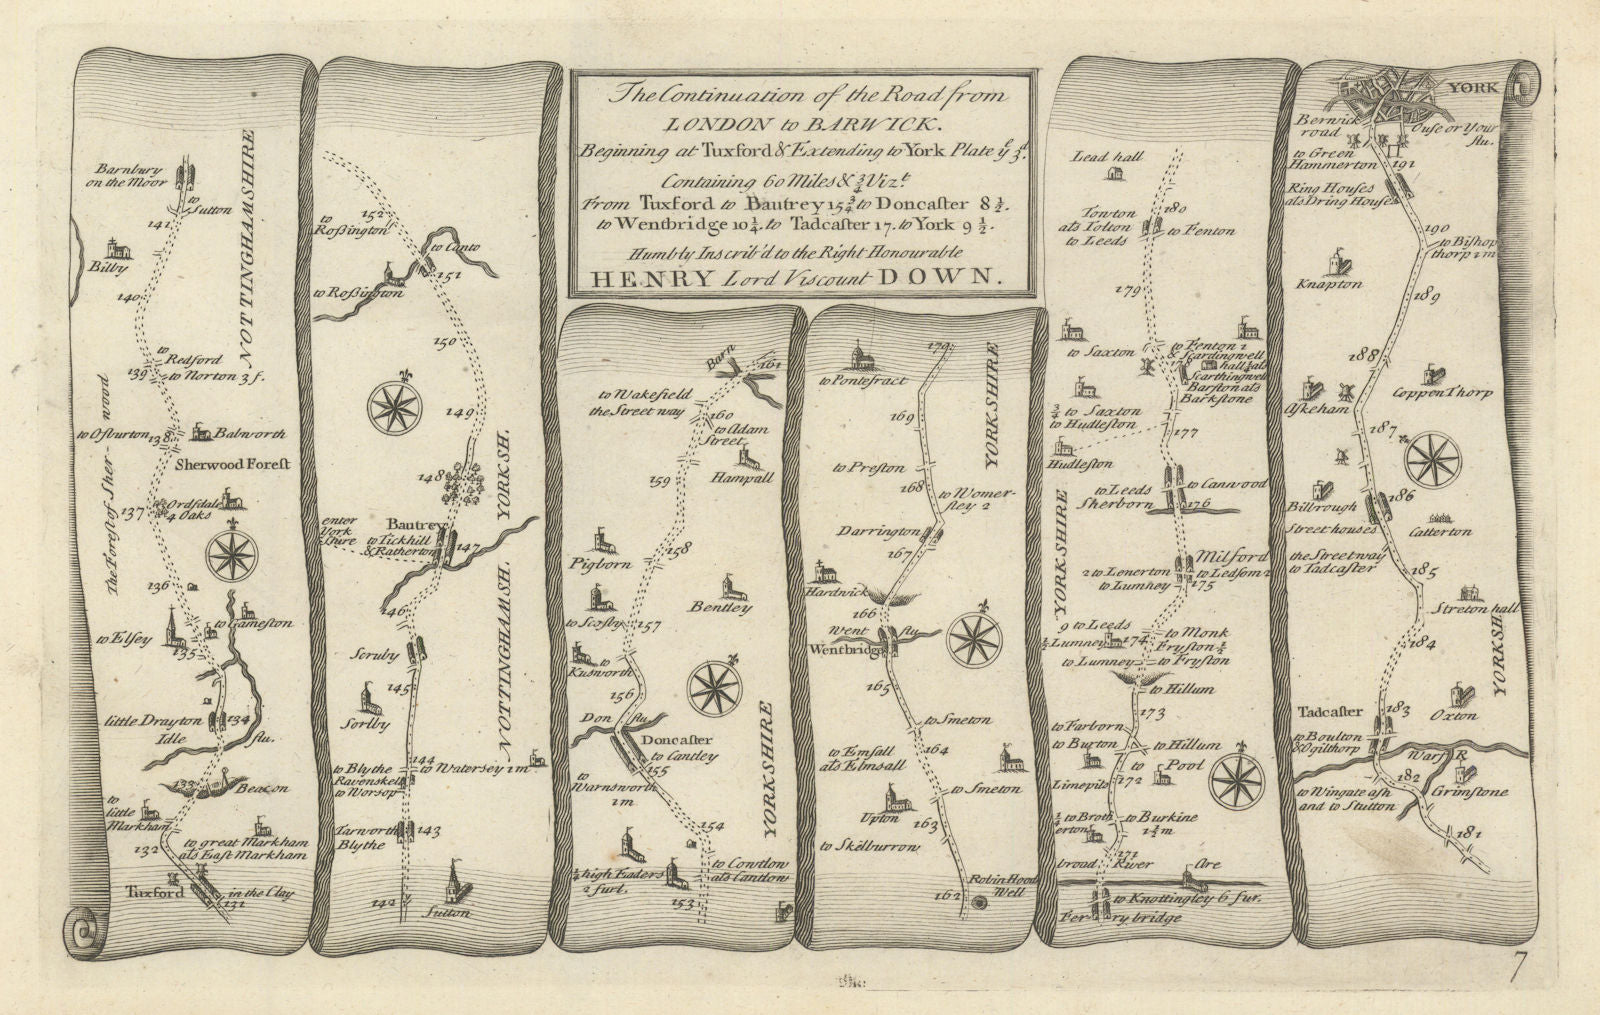 The Continuation of the Road from
LONDON to BARWICK.
Beginning at Tuxford & Extending to York Plate yᵉ 3ᵈ.
Containing 60 Miles & ¾ Vizᵗ.
From Tuxford to Bautrey 15¾ to Doncaſter 8½.
to Wentbridge 10¼. to Tadcaſter 17. to York 9½.
Humbly Inscrib'd to the Right Honourable
HENRY Lord Viscount DOWN.
Barnbury
on the Moor
to
Sutton
141
Bilby
140
NOTTINGHAMSHIRE
to
Redford
139
to Norton 3 f.
The Foreſt of Sherwood
to Oſburton
138
Babworth
Sherwood Foreſt
137
Ordſdale
4 Oaks
136
to Elſey
to Gameſton
135
little Drayton
134
Idle
flu.
133
Beacon
to
little
Markham
132
to great Markham
als East Markham
Tuxford
in the Clay
131
to
Roßington
152
to Canto
151
to Roßington
150
149
YORKSH.
148
enter
York
ſhire
Bautrey
to Tickhill
& Ratherton
147
146
NOTTINGHAMSH.
Scruby
145
Sorlby
144
to Blythe
to Watersey 1 m
Ravenskel
to Worsop
Tarworth
143
Blythe
142
Sutton
Barn
161
to Wakefield
the Street way
160
to Adam
Street
159
Hampall
Pigborn
158
Bentley
to Scoſby
157
to
Kusworth
156
Don
flu
Doncaſter
to Cantley
155
to
Warnsworth
1 m
YORKSHIRE
154
¼ high Eaders
2 furl.
to Cowtlow
als Cantlow
153
170
to Pontefract
YORKSHIRE
169
to Preston
168
to Womer-
ſley 2
Darrington
167
Hardwick
166
Went
flu
Wentbridge
165
to Smeton
164
to Emſall
als Elmsall
to Smeton
Upton
163
to Skelburrow
162
Robin Hood
Well
Lead hall
180
Towton
als Tolton
to Leeds
to Fenton
179
to Saxton
to Fenton 1
& Scardingwell
hall ¾ als
Scarthingwell
Barſton als
Barkstone
¾ to Saxton
to Hudleſton
177
Hudleſton
to Leeds
to Canwood
Sherborn
176
YORKSHIRE
Milford
2 to Lenerton
to Ledſom 2
to Lumney
175
9 to Leeds
½ Lumney
174
to Monk
Fryſton ½
to Lumney
to Fryſton
to Hillum
173
to Farborn
to Burton
to Hillum
to Pool
Limepits
172
¼ to Broth
erton
to Burkine
1½ m
171
broad River
Are
to Knottingley 6 fur.
Ferry bridge
YORK
Berwick
road
Ouſe or Your
flu.
to Green
Hammerton
191
Ring Houſes
als Dring Houſes
190
to Biſhop
thorp 1 m
Knapton
189
188
Aſkeham
Coppen Thorp
187
Bilbrough
186
Street houſes
Catterton
the Street way
to Tadcaſter
185
Streton hall
184
YORKSH.
Oxton
Tadcaſter
183
to Boulton
& Ogilthorp
Warf R
182
to Wingate aſh
and to Stutton
Grimſtone
181
7